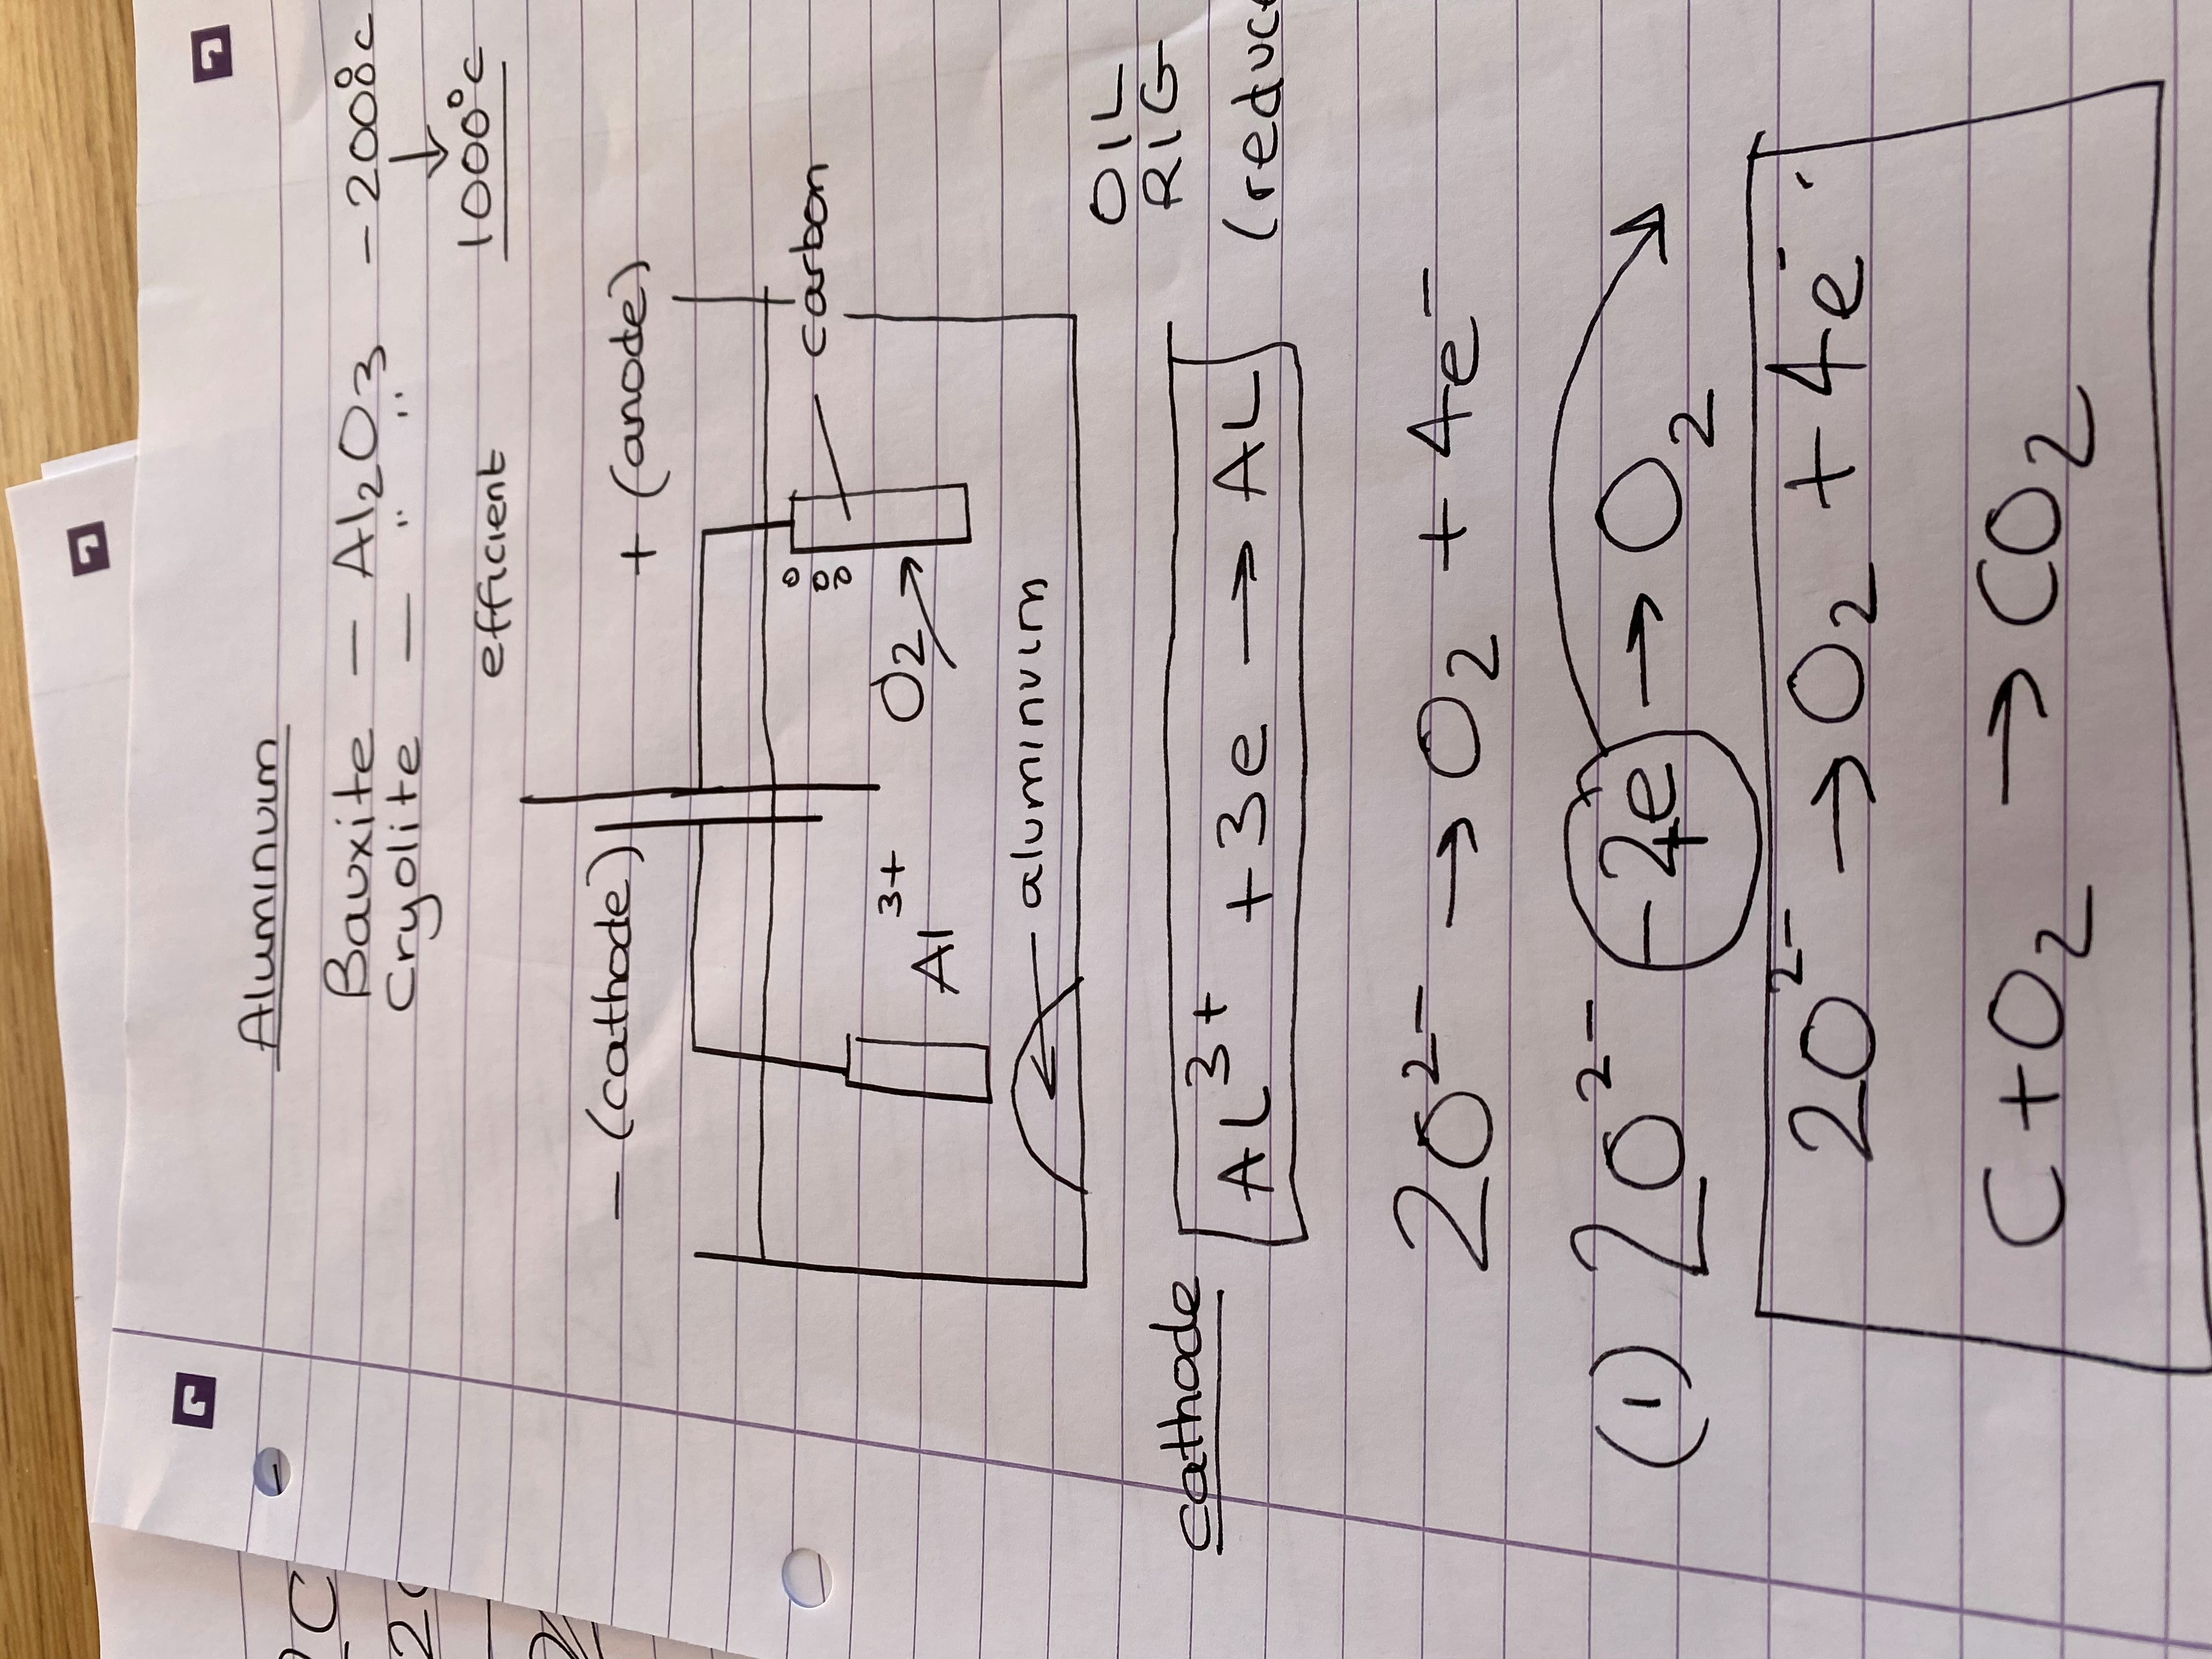 Aluminum
Bauxite - Al2O3 - 2000°C
Cryolite - " " ↓
efficient 1000°C
- (cathode) + (anode)
carbon
Al3+ O2
← aluminum
OIL
RIG
cathode AL3+ + 3e → AL (reduc
2O2- → O2 + 4e-
(1) 2O2- - 4e → O2
2O2- → O2 + 4e-
C + O2 → CO2